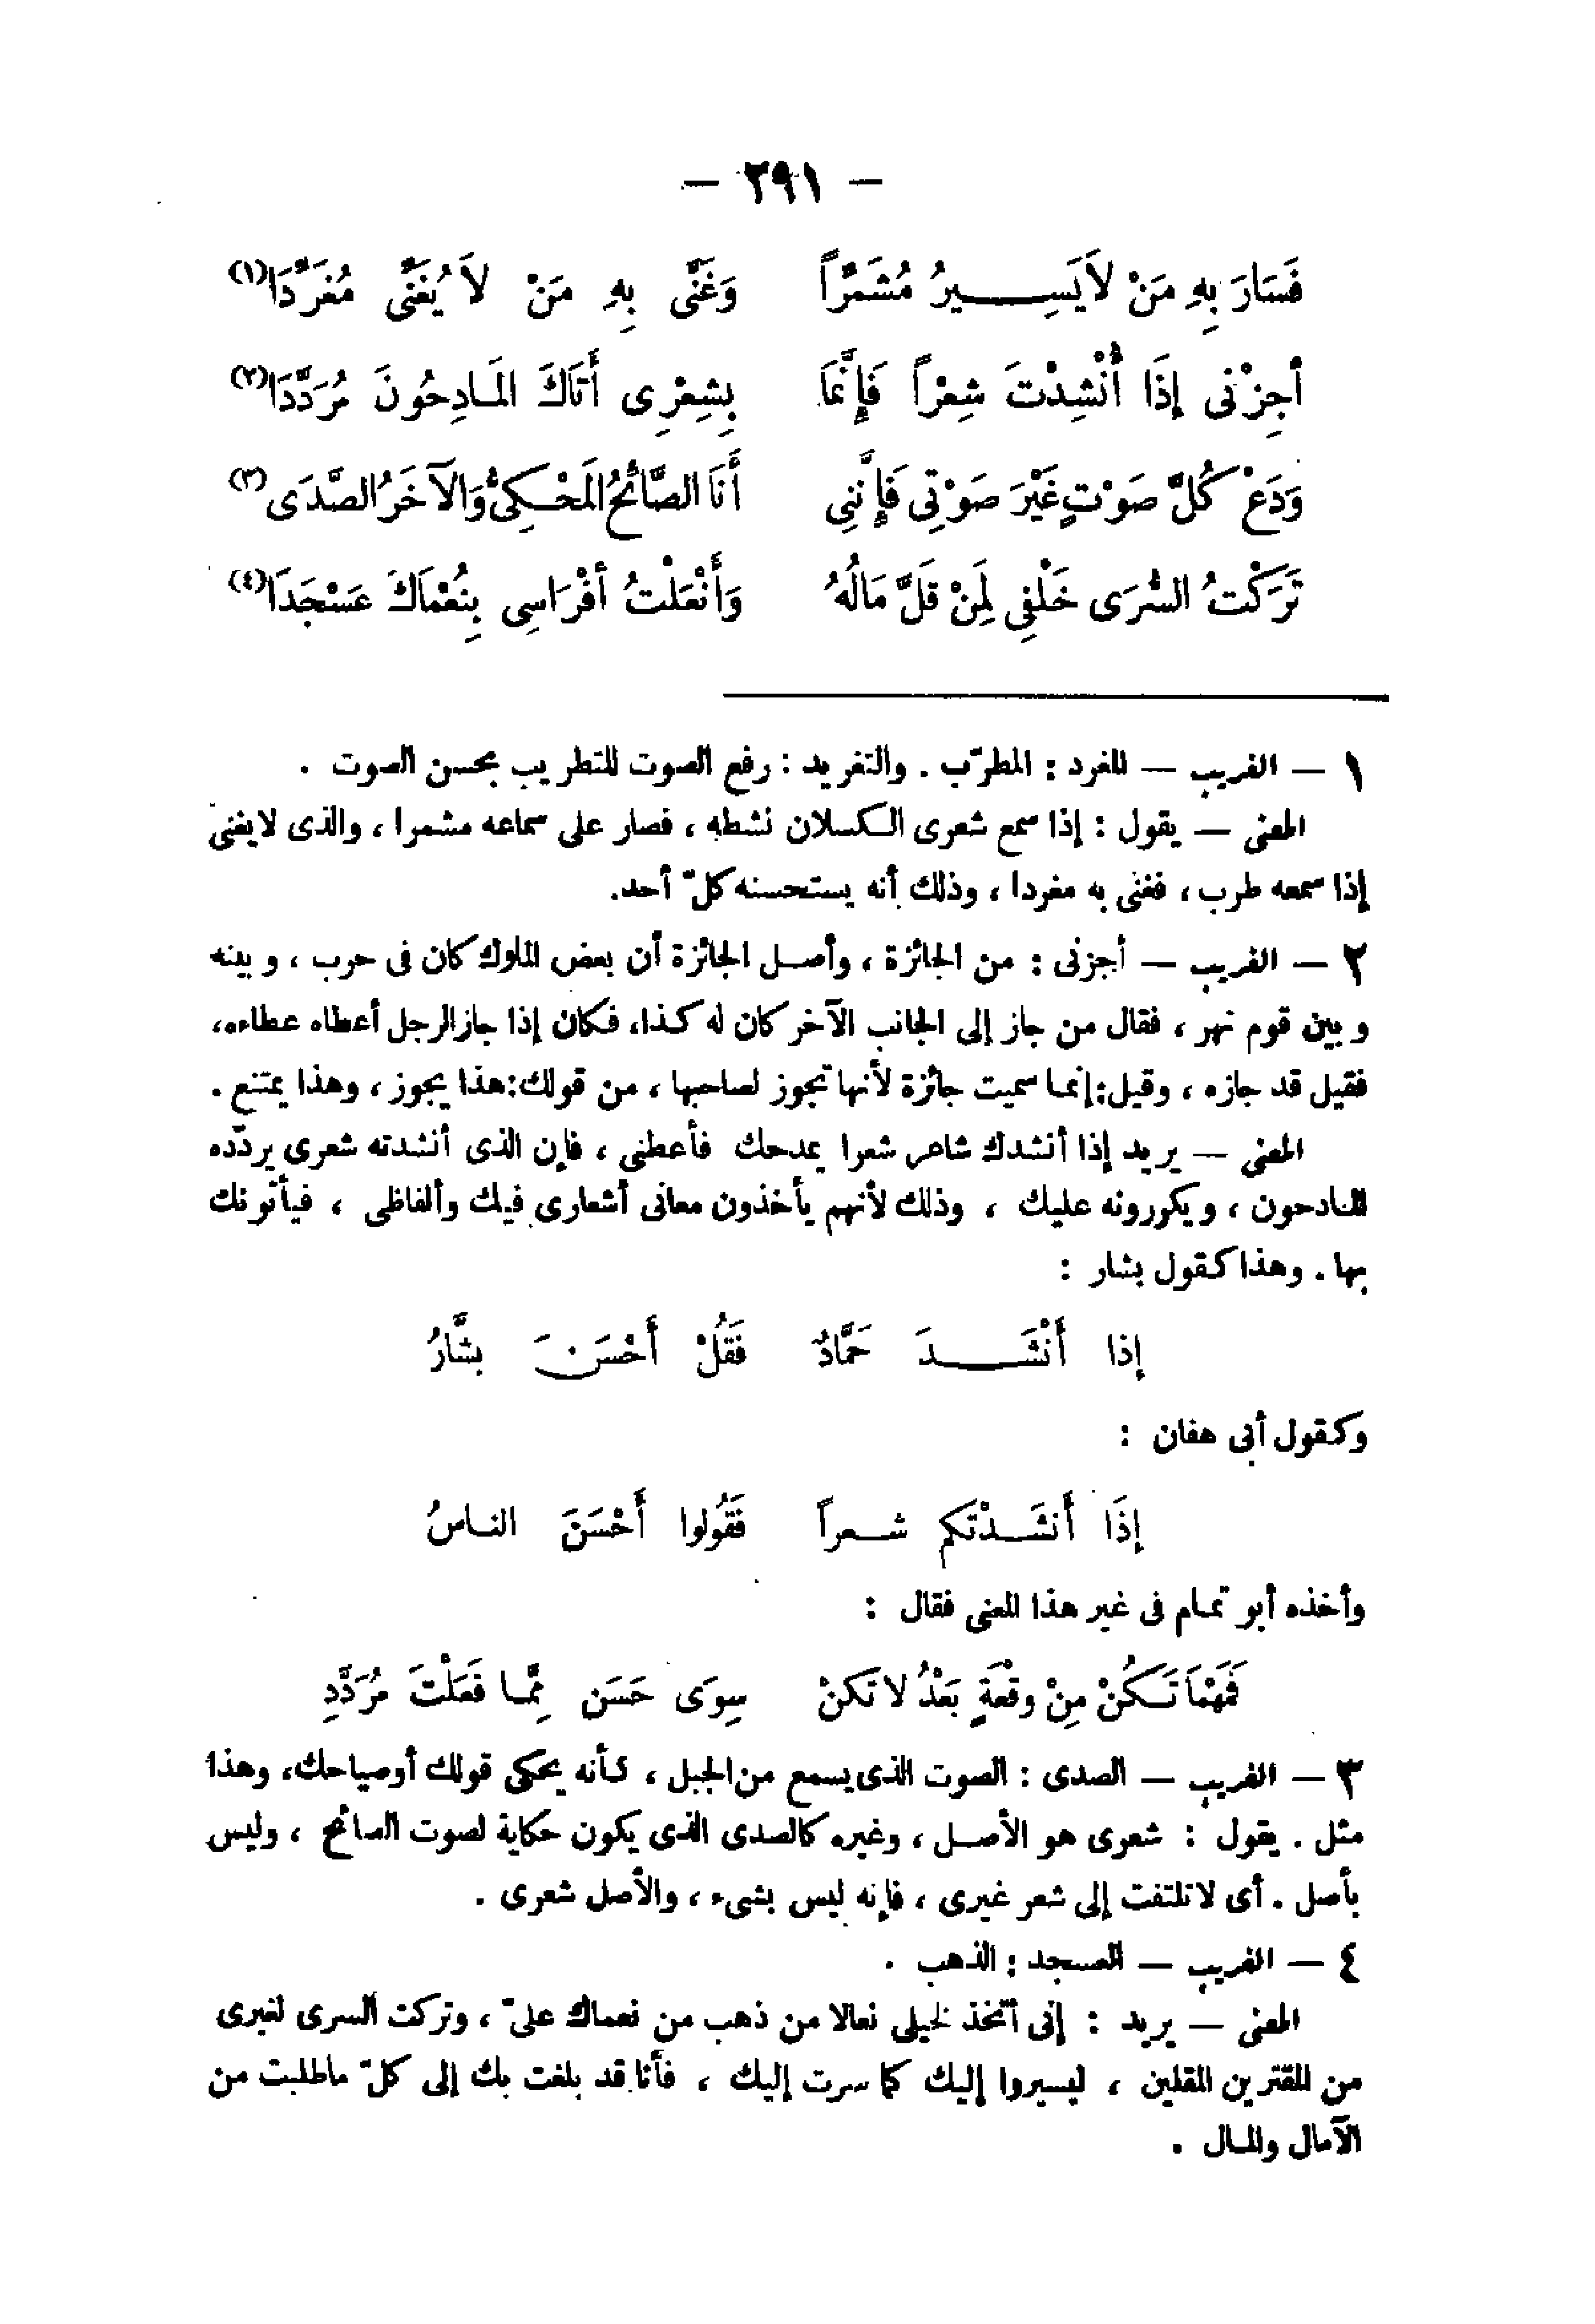 — ٢٩١ —
فَسَارَ بِهِ مَنْ لاَيَسِيرُ مُشَمِّراً وَغَنَّى بِهِ مَنْ لاَ يُغَنِّى مُغَرِّدَا(١)
أَجِزْنِى إِذَا أُنْشِدْتَ شِعْراً فَإِنَّمَا بِشِعْرِى أَتَاكَ المَادِحُونَ مُرَدَّدَا(٢)
وَدَعْ كُلَّ صَوْتٍ غَيْرَ صَوْتِى فَإِنَّنِى أَنَا الصَّائحُ المَحْكِىُّ وَالآخَرُ الصَّدَى(٣)
تَرَكْتُ السُّرَى خَلْفِى لِمَنْ قَلَّ مَالُهُ وَأَنْعَلْتُ أَفْرَاسِى بِنُعْمَاكَ عَسْجَدَا(٤)
١ — الغريب — المغرد : المطرّب . والتغريد : رفع الصوت للتطريب بحسن الصوت .
المعنى — يقول : إذا سمع شعرى الكسلان نشطه ، فصار على سماعه مشمرا ، والذى لايغنى
إذا سمعه طرب ، فغنى به مغردا ، وذلك أنه يستحسنه كلّ أحد.
٢ — الغريب — أجزنى : من الجائزة ، وأصل الجائزة أن بعض الملوك كان فى حرب ، وبينه
وبين قوم نهر ، فقال من جاز إلى الجانب الآخر كان له كذا، فكان إذا جاز الرجل أعطاه عطاءه،
فقيل قد جازه ، وقيل: إنما سميت جائزة لأنها تجوز لصاحبها ، من قولك: هذا يجوز ، وهذا يمتنع .
المعنى — يريد إذا أنشدك شاعر شعرا يمدحك فأعطنى ، فإن الذى أنشدته شعرى يردّده
المادحون ، ويكررونه عليك ، وذلك لأنهم يأخذون معانى أشعارى فيك وألفاظى ، فيأتونك
بها . وهذا كقول بشار :
إذا أَنْشَدَ حَمَّادٌ فَقُلْ أَحْسَنَ بشَّارُ
وكقول أبى هفان :
إِذَا أَنشَدْتكم شعراً فَقُولوا أَحْسَنَ الناسُ
وأخذه أبو تمام فى غير هذا المعنى فقال :
فَمَهْمَا تَكُنْ مِنْ وقْعَةٍ بَعْدُ لا تكنْ سِوَى حَسَنٍ مِمَّا فَعَلْتَ مُرَدَّدِ
٣ — الغريب — الصدى : الصوت الذى يسمع من الجبل ، كأنه يحكى قولك أوصياحك، وهذا
مثل . يقول : شعرى هو الأصل ، وغيره كالصدى الذى يكون حكاية لصوت الصائح ، وليس
بأصل . أى لاتلتفت إلى شعر غيرى ، فإنه ليس بشىء ، والأصل شعرى .
٤ — الغريب — العسجد : الذهب .
المعنى — يريد : إنى أتخذ لخيلى نعالا من ذهب من نعماك علىّ ، وتركت السرى لغيرى
من المقترين المقلين ، ليسيروا إليك كما سرت إليك ، فأنا قد بلغت بك إلى كلّ ماطلبت من
الآمال والمال .